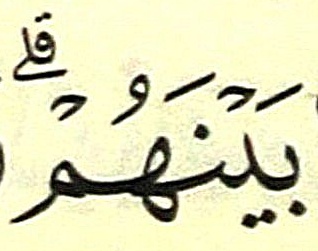 بَيْنَهُمْۗ